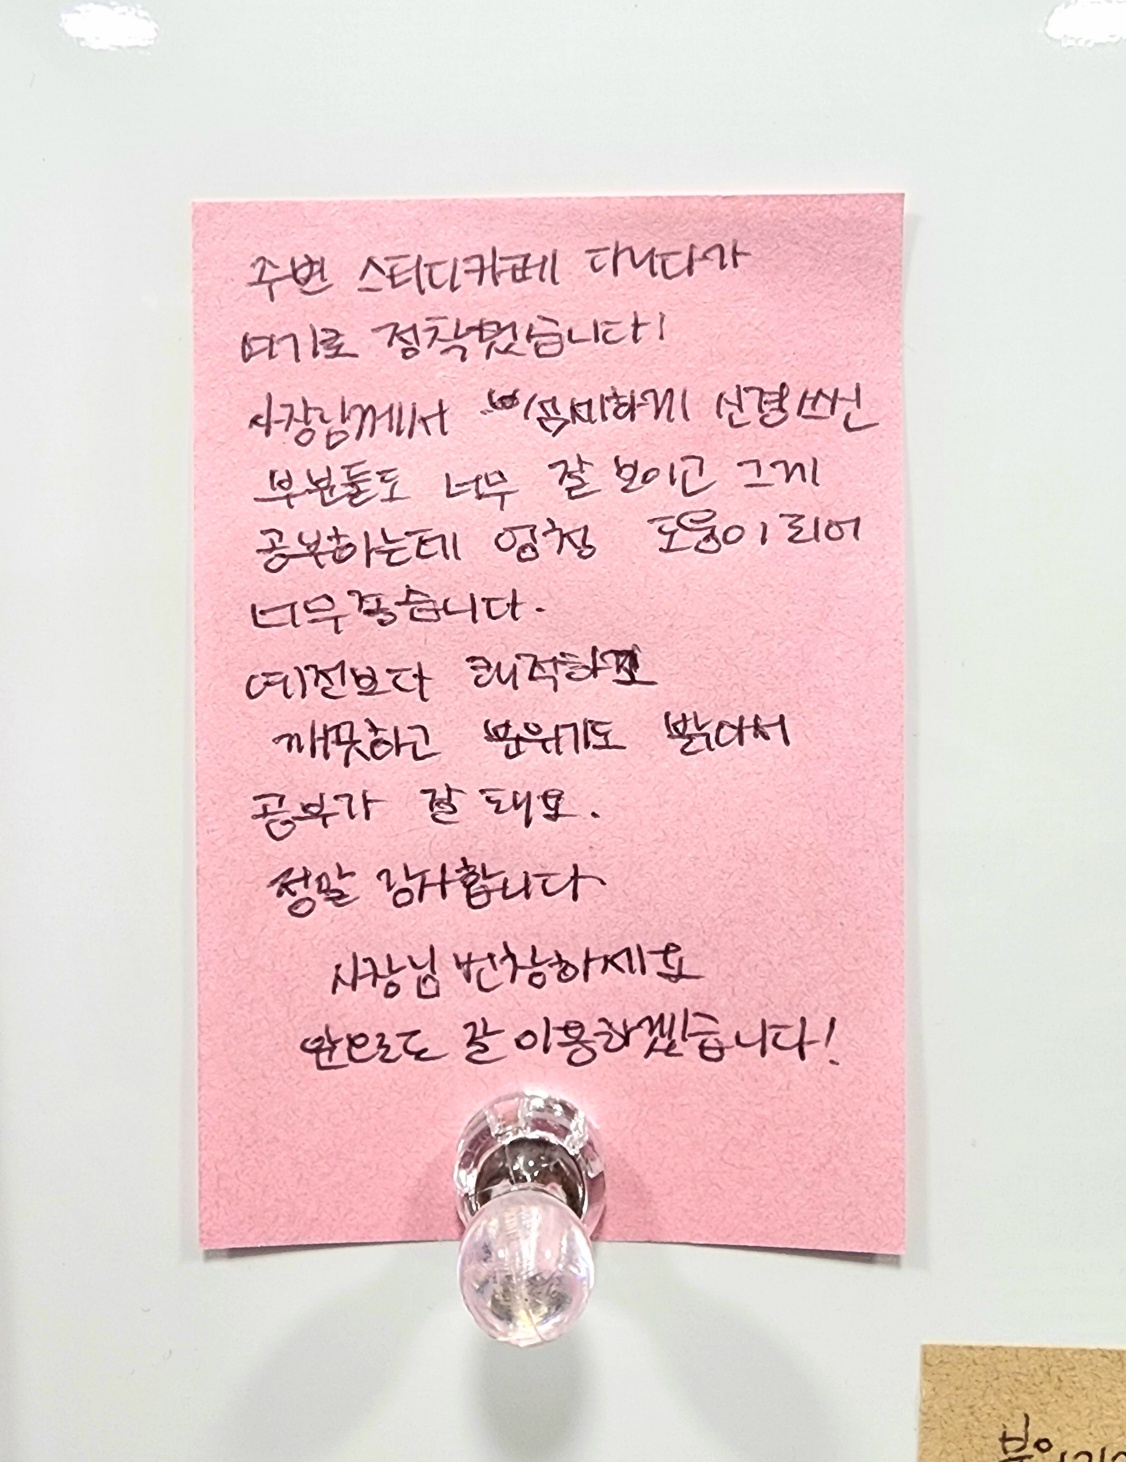 주변 스터디카페 다니다가
여기로 정착했습니다!
사장님께서 꼼꼼하게 신경쓰신
부분들도 너무 잘 보이고 그게
공부하는데 엄청 도움이 되어
너무좋습니다.
예전보다 쾌적하고
깨끗하고 분위기도 밝아서
공부가 잘 돼요.
정말 감사합니다
사장님 번창하세요
앞으로도 잘 이용하겠습니다!